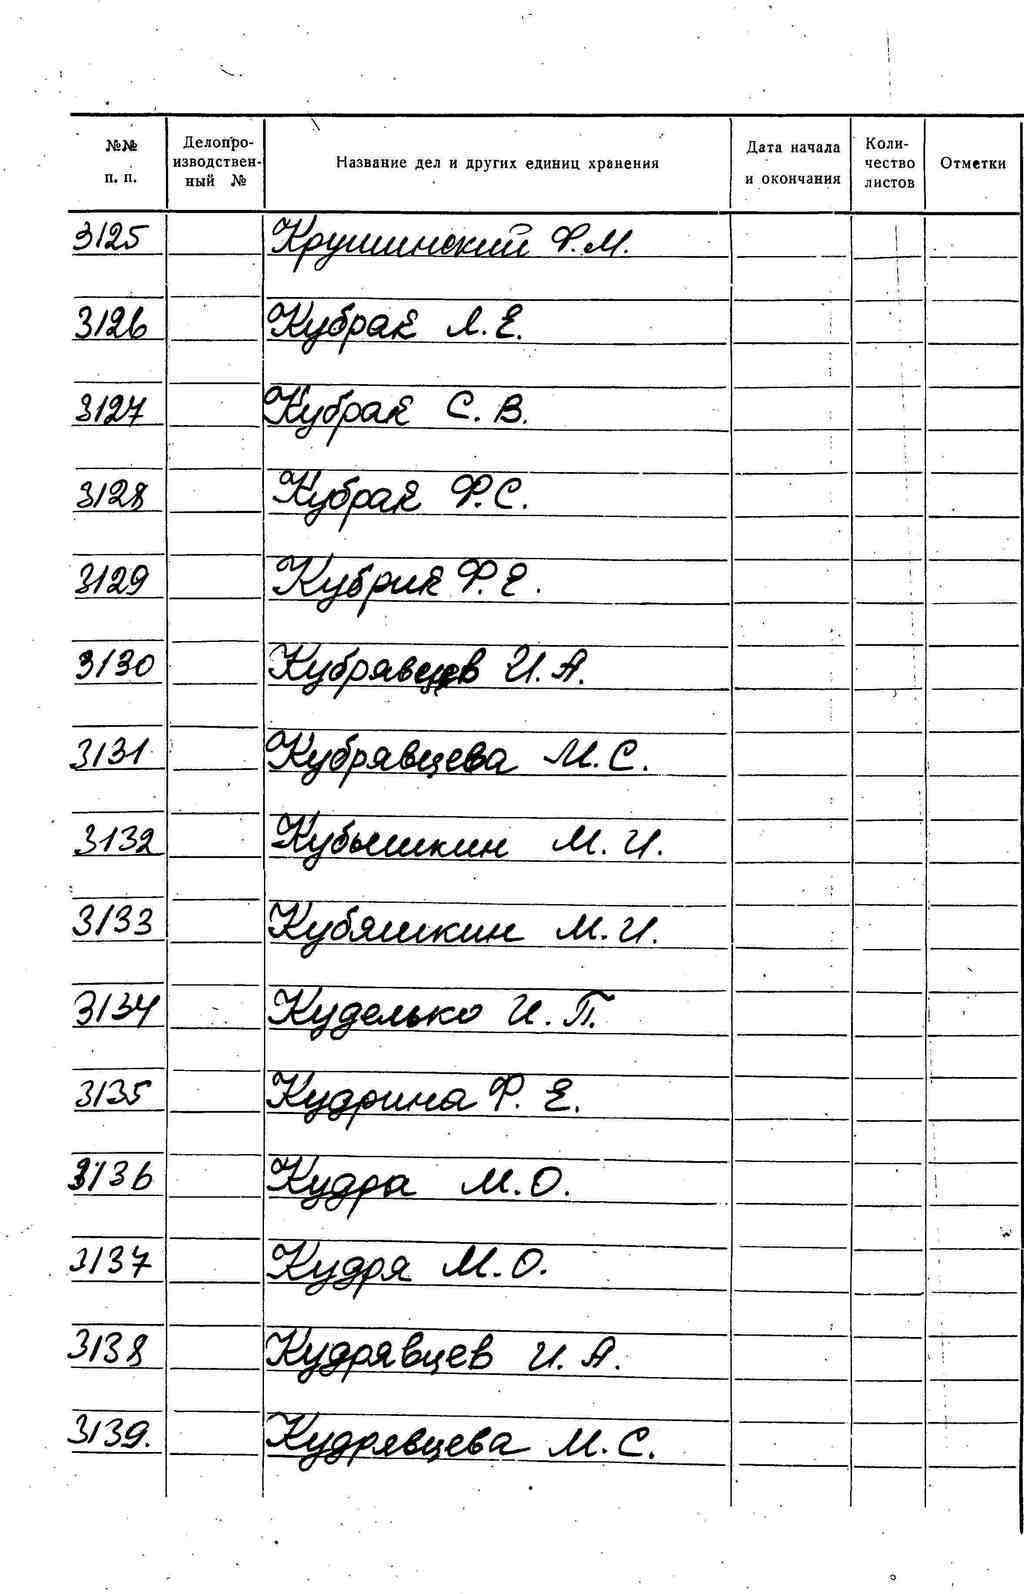 №№ п. п. Делопроизводствен-ный № Название дел и других единиц хранения Дата начала и окончания Коли-чество листов Отметки
3125 Крушинский Ф.М.
3126 Кубрак Л.Е.
3127 Кубрак С.В.
3128 Кубрак Ф.С.
3129 Кубрик Ф.Е.
3130 Кубрявцев И.А.
3131 Кубрявцева М.С.
3132 Кубышкин М.И.
3133 Кубяшкин М.И.
3134 Куделько И.П.
3135 Кудрина Ф.Е.
3136 Кудра М.О.
3137 Кудря М.О.
3138 Кудрявцев И.А.
3139. Кудрявцева М.С.